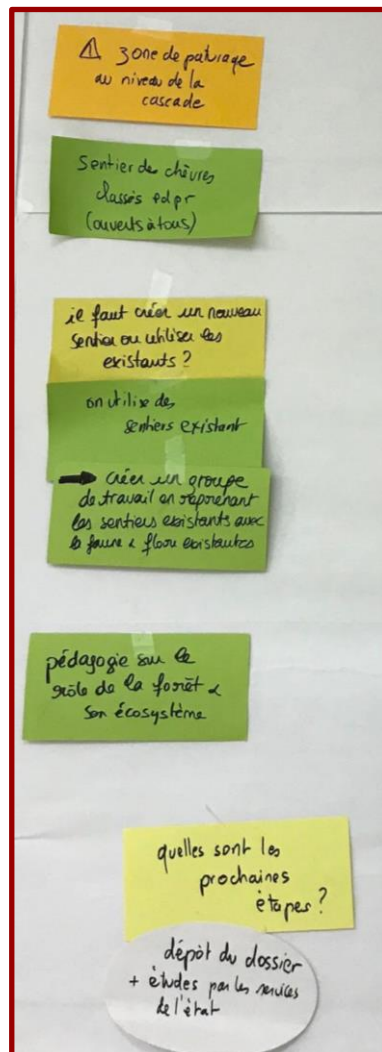 ⚠ zone de pâturage
au niveau de la
cascade
Sentier des chèvres
classés pdpr
(ouverts à tous)
il faut créer un nouveau
sentier ou utiliser les
existants ?
on utilise des
sentiers existant
→ créer un groupe
de travail en reprenant
les sentiers existants avec
la faune & flore existantes
pédagogie sur le
rôle de la forêt &
son écosystème
quelles sont les
prochaines
étapes ?
dépôt du dossier
+ études par les services
de l'état